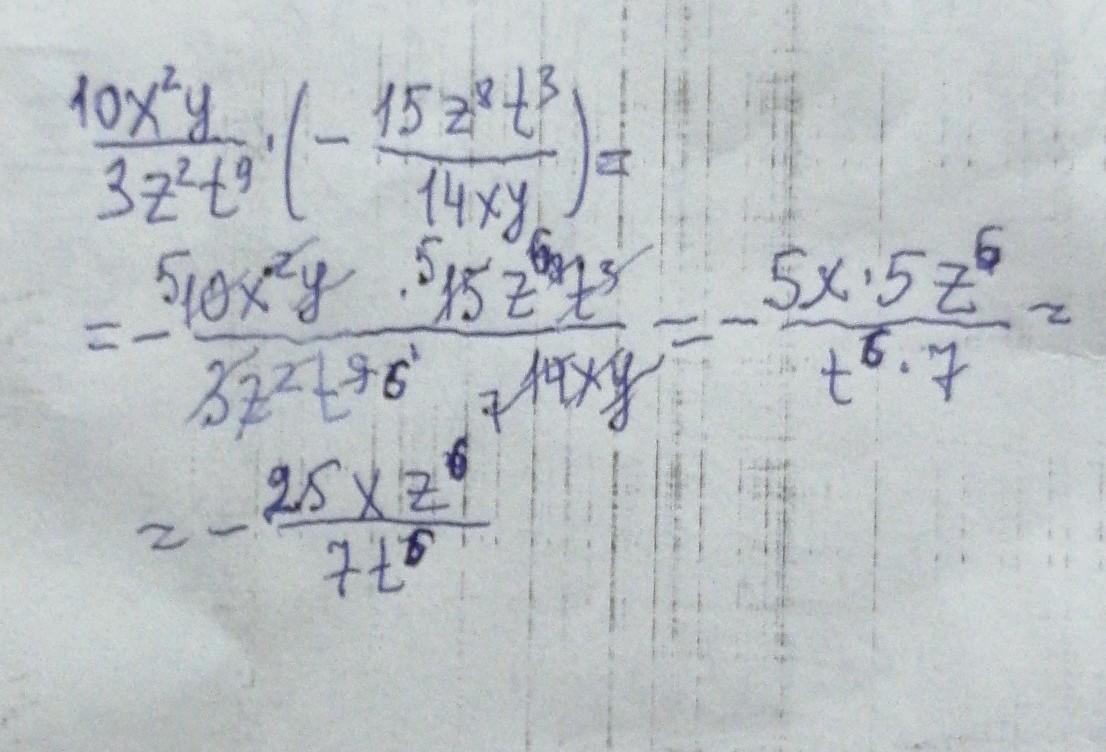 10x²y / 3z²t⁹ · (− 15z⁸t³ / 14xy) =
= − ⁵10x²y · ⁵15z⁶⁸t³ / 3z²t⁹⁶ ₇14xy = − 5x·5z⁶ / t⁶·7 =
= − 25xz⁶ / 7t⁶